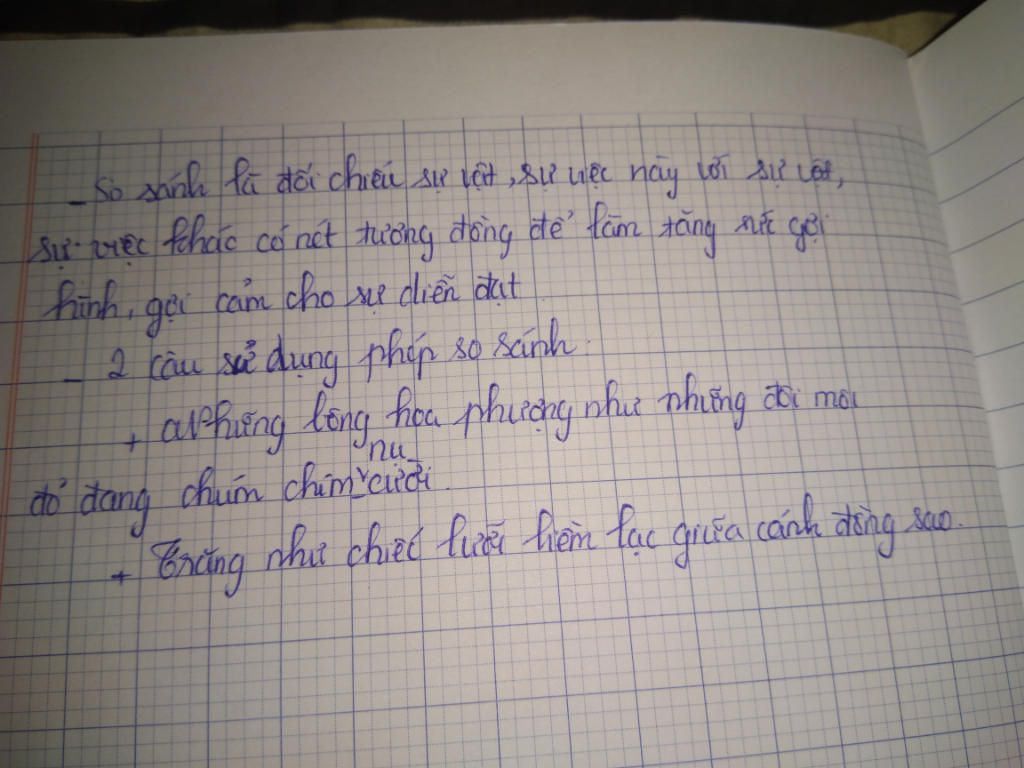 - So sánh là đối chiếu sự vật, sự việc này với sự vật,
sự việc khác có nét tương đồng để làm tăng sức gợi
hình, gợi cảm cho sự diễn đạt
- 2 câu sử dụng phép so sánh:
+ Những bông hoa phượng như những đôi môi
đỏ đang chúm chím nụ cười.
+ Trăng như chiếc lưỡi liềm lạc giữa cánh đồng sao.